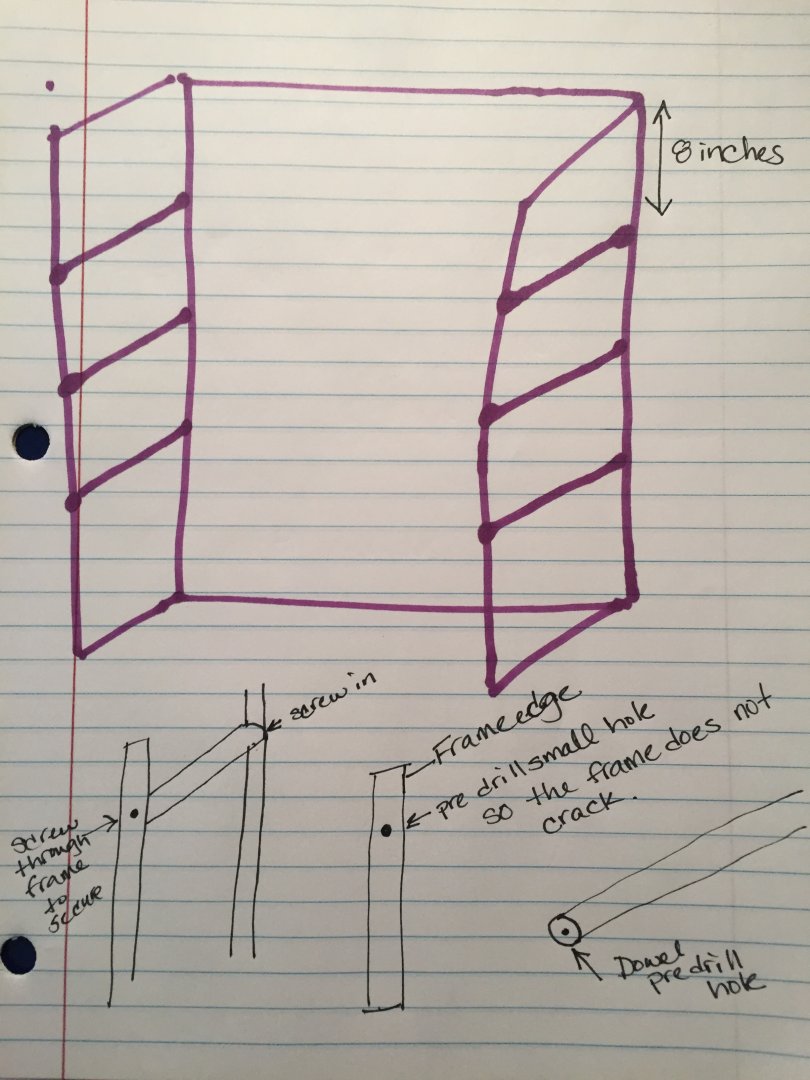 8 inches
screw in
Frame edge
pre drill small hole
so the frame does not
crack.
screw
through
frame
to
secure
Dowel
predrill
hole